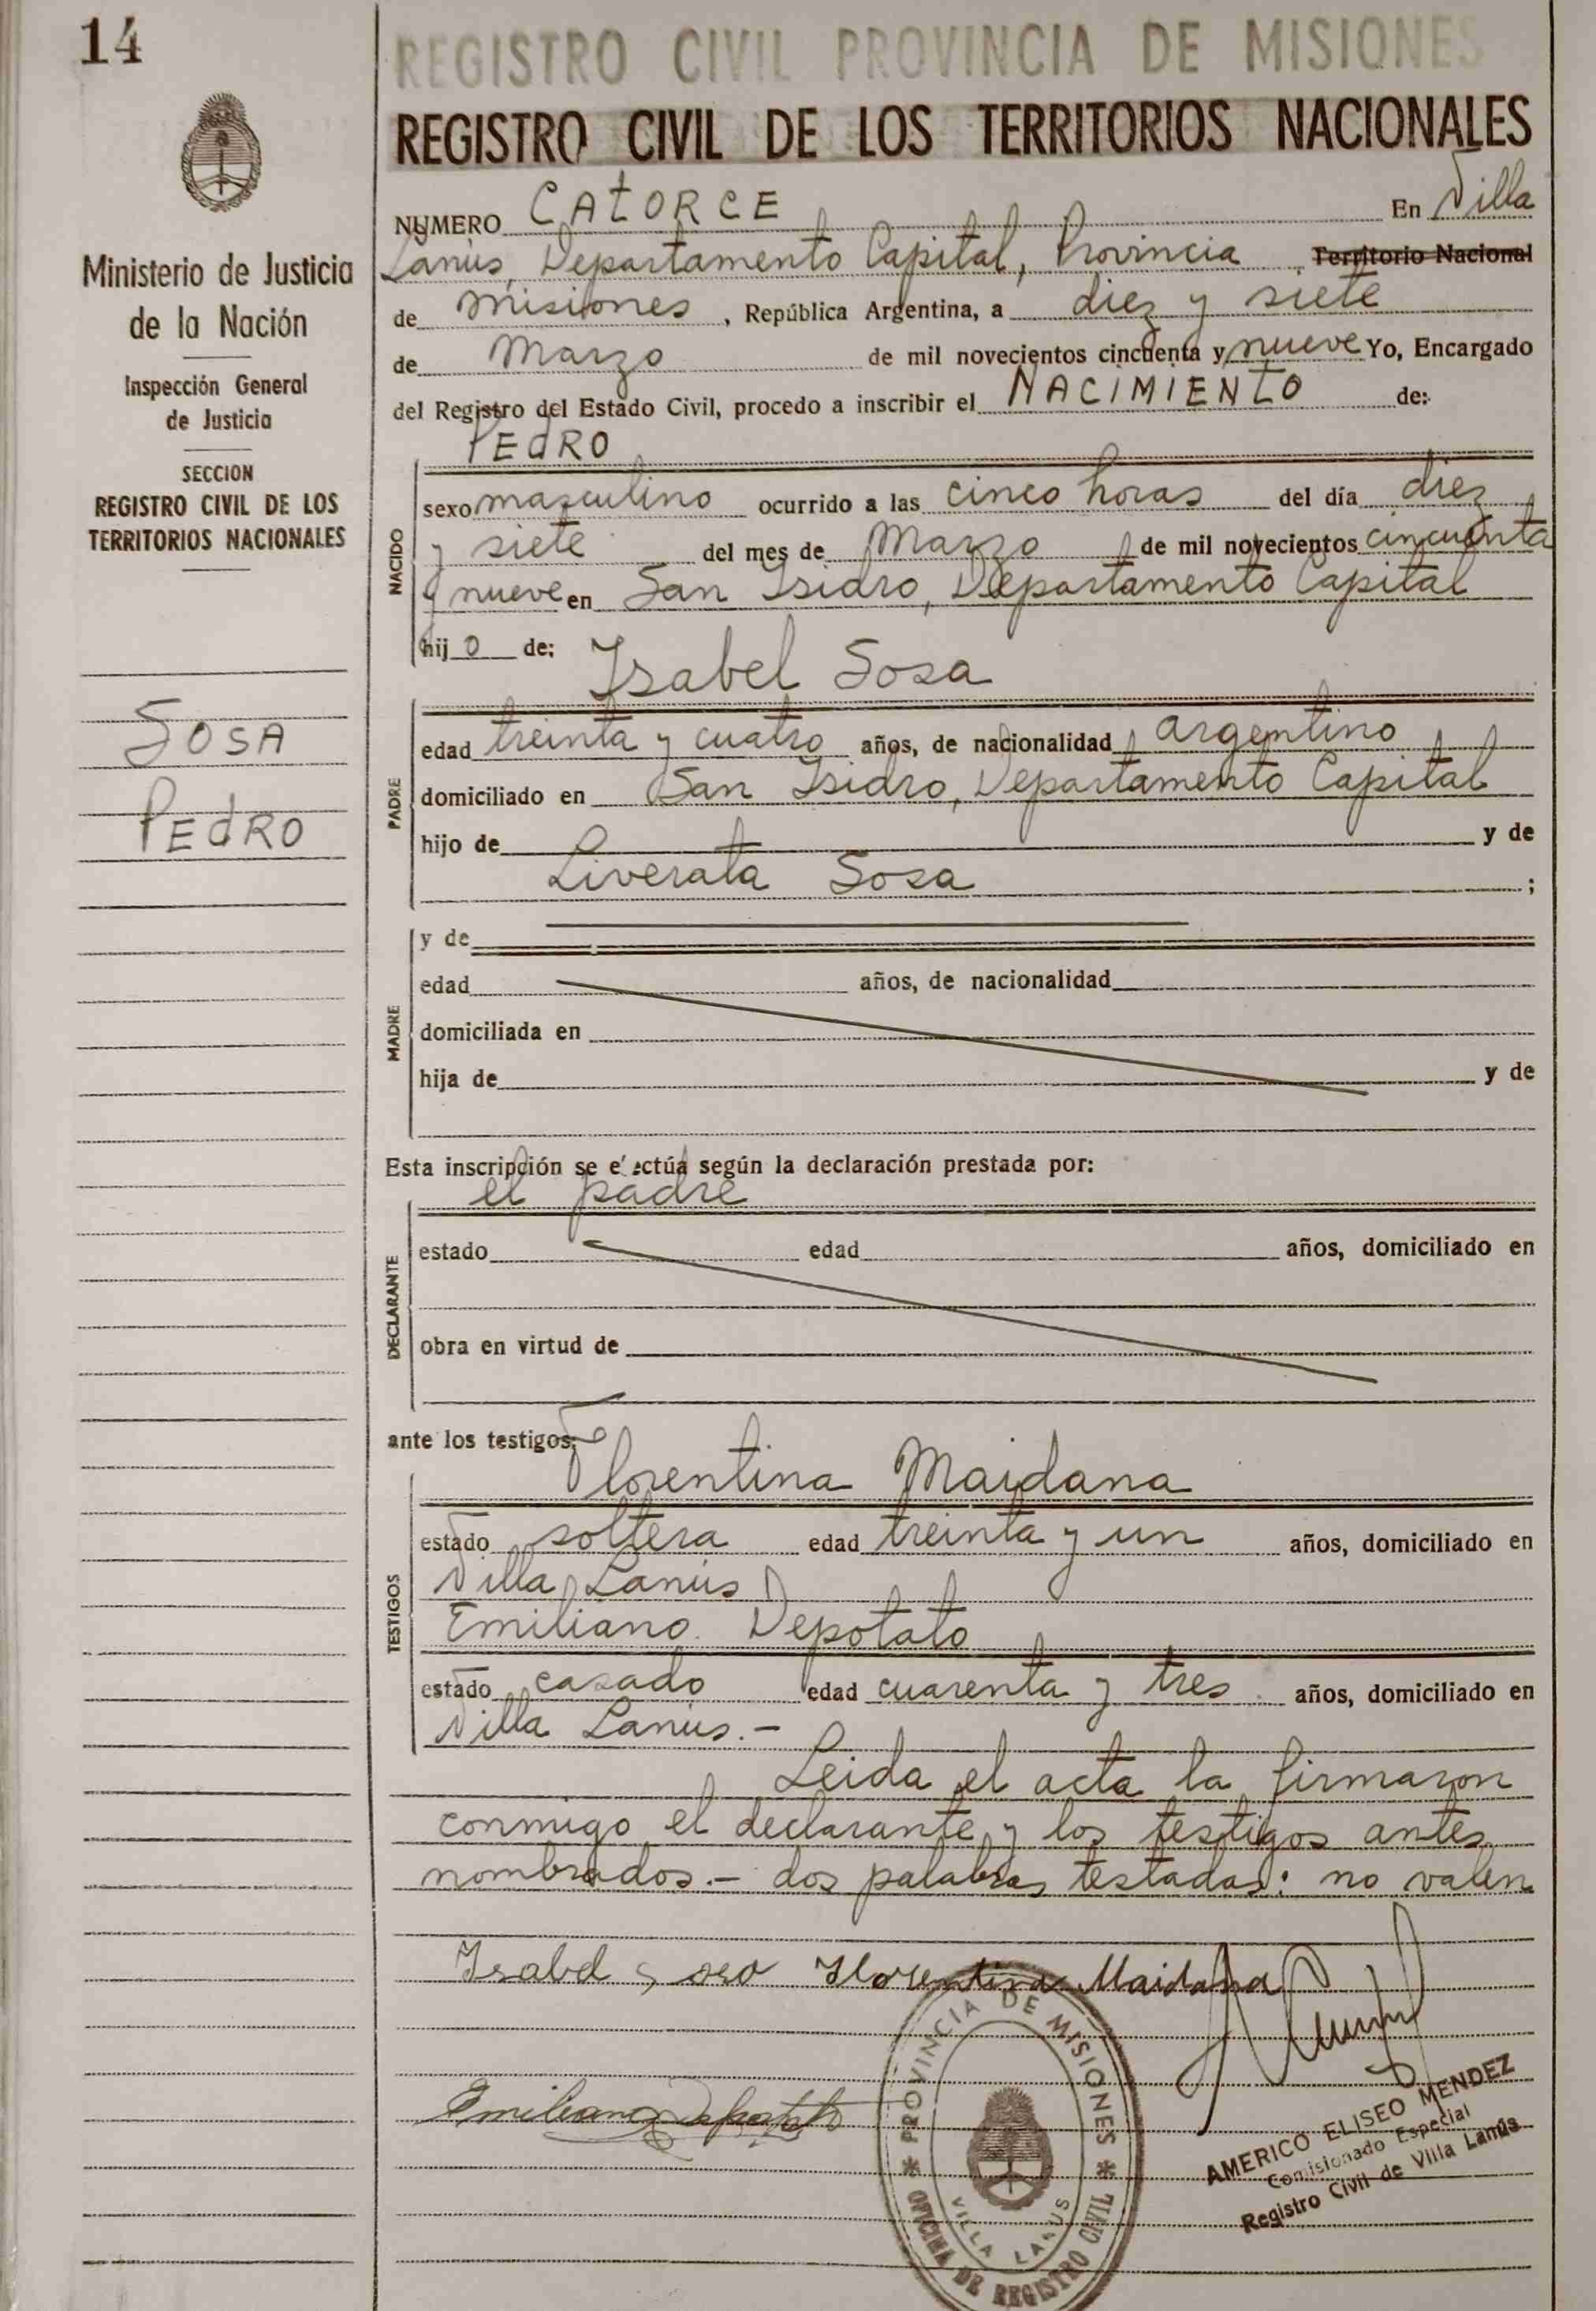 14
Ministerio de Justicia
de la Nación
Inspección General
de Justicia
SECCION
REGISTRO CIVIL DE LOS
TERRITORIOS NACIONALES
SOSA
PEdRO
REGISTRO CIVIL PROVINCIA DE MISIONES
REGISTRO CIVIL DE LOS TERRITORIOS NACIONALES
NUMERO CAtORCE En Villa
Lanús, Departamento Capital, Provincia, Territorio Nacional
de Misiones, República Argentina, a diez y siete
de Marzo de mil novecientos cincuenta y nueve Yo, Encargado
del Registro del Estado Civil, procedo a inscribir el NACIMIENtO de:
PEdRO
NACIDO
sexo masculino ocurrido a las cinco horas del día diez
y siete del mes de Marzo de mil novecientos cincuenta
y nueve en San Isidro, Departamento Capital
hij o de:
Isabel Sosa
PADRE
edad treinta y cuatro años, de nacionalidad argentino
domiciliado en San Isidro, Departamento Capital
hijo de y de
Liverata Sosa ;
MADRE
y de
edad años, de nacionalidad
domiciliada en
hija de y de
Esta inscripción se efectúa según la declaración prestada por:
el padre
DECLARANTE
estado edad años, domiciliado en
obra en virtud de
ante los testigos:
Florentina Maidana
TESTIGOS
estado soltera edad treinta y un años, domiciliado en
Villa Lanús
Emiliano Depotato
estado casado edad cuarenta y tres años, domiciliado en
Villa Lanús.-
Leida el acta la firmaron
conmigo el declarante y los testigos antes
nombrados.- dos palabras testadas: no valen
Isabel Soso Florentina Maidana
Emiliano Depotato
PROVINCIA DE MISIONES
OFICINA DE REGISTRO CIVIL
VILLA LANUS
AMERICO ELISEO MENDEZ
Comisionado Especial
Registro Civil de Villa Lanús